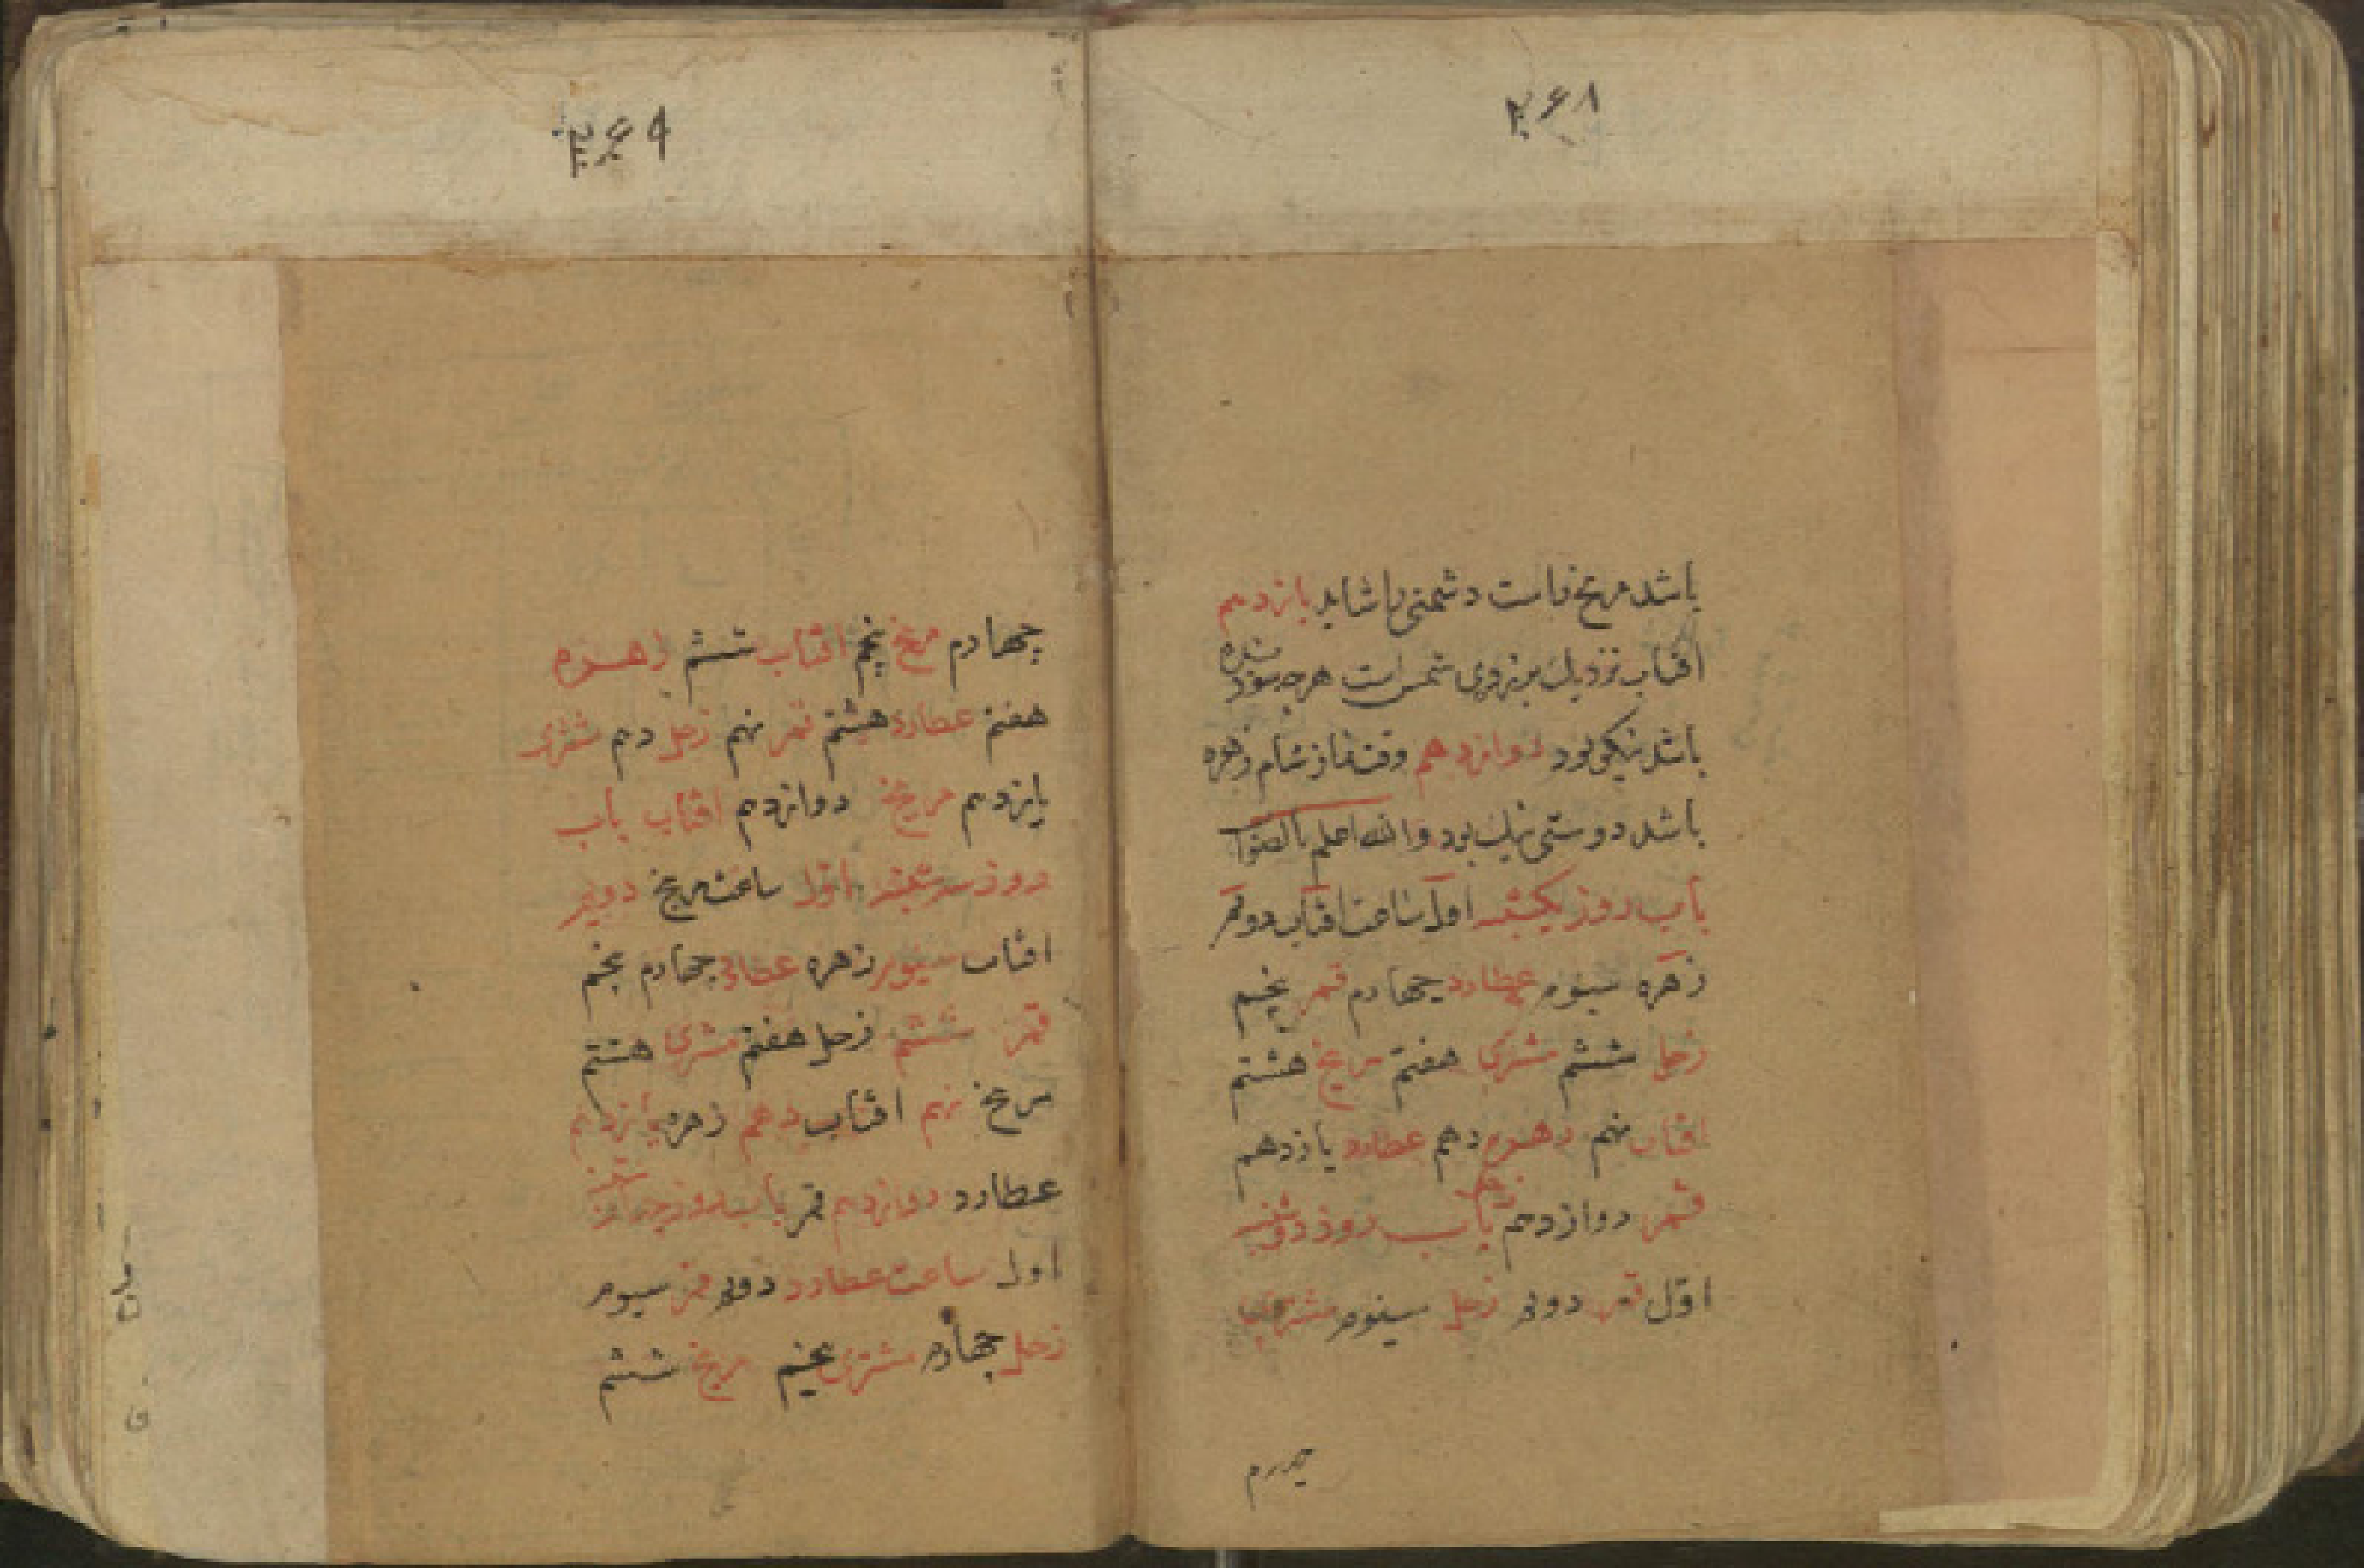 ۲۶۸
باشد مریخ است دشمنی را شاید یازدهم
افتاب نزدیک شمس است هرچه بود شده
باشد نیکی بود دوازدهم وقت نماز شام زهره
باشد دوستی نیک بود والله اعلم بالصواب
باب روز یکشنبه اول ساعت افتاب دو قمر
زهره سیوم عطارد چهارم قمر پنجم
زحل ششم مشتری هفتم مریخ هشتم
افتاب نهم زهره دهم عطارد یازدهم
قمر دوازدهم زحل باب روز دوشنبه
اول قمر دویم زحل سیوم مشتری
چهارم
۲۶۹
چهارم مریخ پنجم افتاب ششم زهره
هفتم عطارد هشتم قمر نهم زحل دهم مشتری
یازدهم مریخ دوازدهم افتاب باب
روز سه شنبه اول ساعت مریخ دویم
افتاب سیوم زهره عطارد چهارم پنجم
قمر ششم زحل هفتم مشتری هشتم
مریخ نهم افتاب دهم زهره یازدهم
عطارد دوازدهم قمر باب روز چهارشنبه
اول ساعت عطارد دویم قمر سیوم
زحل چهارم مشتری پنجم مریخ ششم